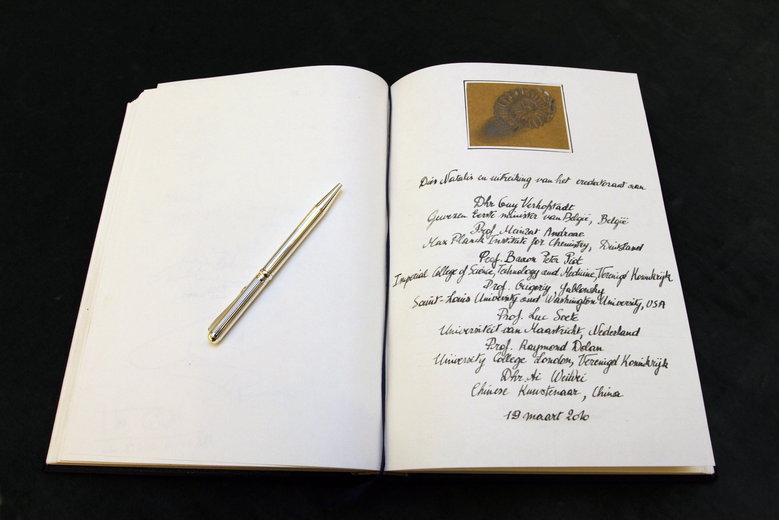 Dies Natalis en uitreiking van het eredoctoraat aan
Dhr Guy Verhofstadt
Gewezen Eerste minister van België, België
Prof. Meinrat Andreae
Max Planck Institute for Chemistry, Duitsland
Prof. Baron Peter Piot
Imperial College of Science, Technology and Medicine, Verenigd Koninkrijk
Prof. Grigoriy Yablonsky
Saint-Louis University and Washington University, USA
Prof. Luc Soete
Universiteit van Maastricht, Nederland
Prof. Raymond Dolan
University College London, Verenigd Koninkrijk
Dhr Ai Weiwei
Chinese Kunstenaar, China
19 maart 2010